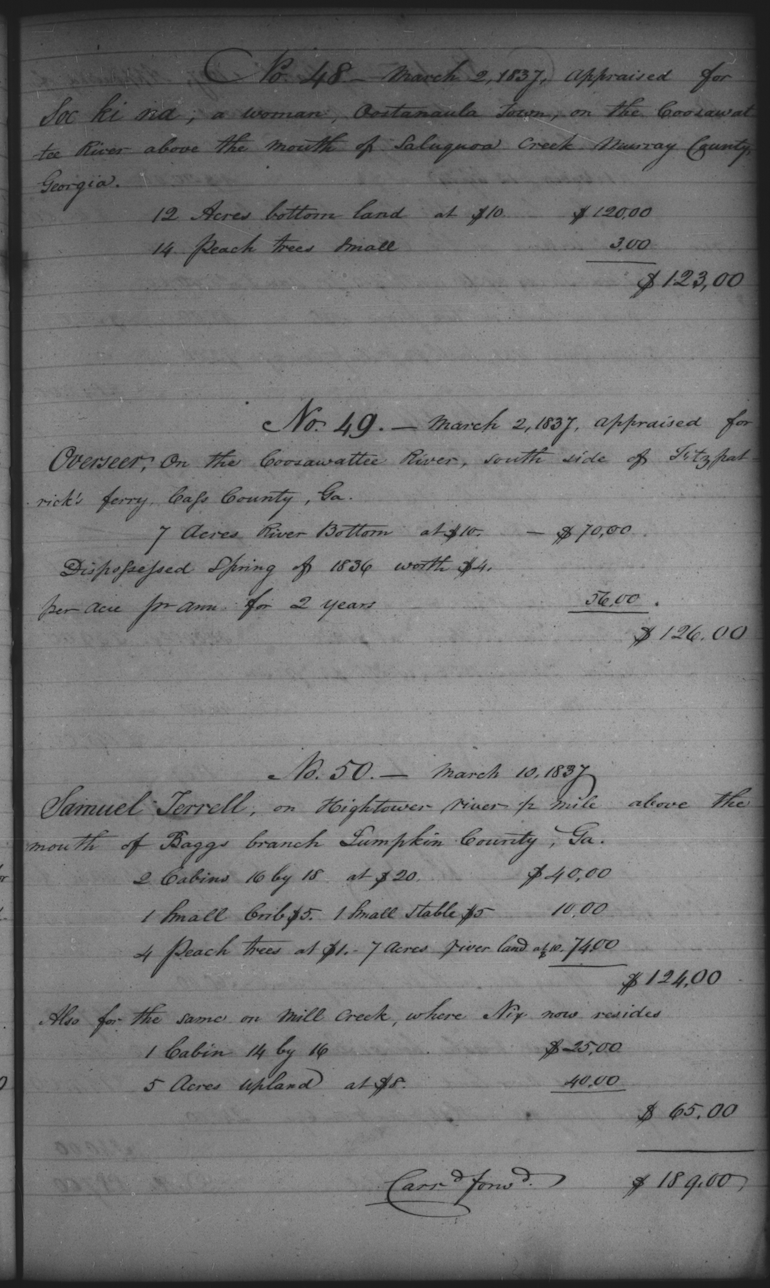 No. 48 — March 2, 1837, Appraised for
Soc ki na, a woman, Oostanaula Town, on the Coosawat
tee River above the mouth of Saluquoa Creek Murray County,
Georgia.
12 Acres bottom land at $10 $120,00
14 Peach trees small 3,00
$123,00
No. 49. — March 2, 1837, appraised for
Overseer, On the Coosawattee River, south side of Fitzpat-
rick's ferry Cass County, Ga.
7 Acres River Bottom at $10. — $70,00.
Dispossessed Spring of 1836 worth $4.
per acre pr ann. for 2 years 56,00.
$126.00
No. 50. — March 10, 1837
Samuel Terrell, on Hightower river ½ mile above the
mouth of Baggs branch Lumpkin County, Ga.
2 Cabins 16 by 18 at $20. $40,00
1 Small Crib $5. 1 Small Stable $5 10,00
4 Peach trees at $1. - 7 Acres river land at 10. 74,00
$124,00
Also for the same on Mill Creek, where Nix now resides
1 Cabin 14 by 16 $25,00
5 Acres upland at $8. 40.00
$65.00
Carrd forwd. $189.00